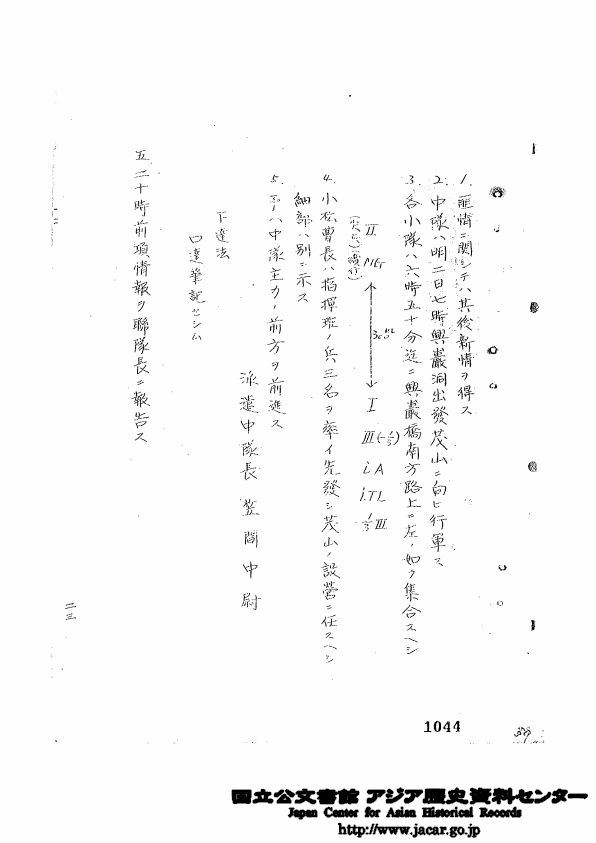 1. 匪情ニ関シテハ其後新情ヲ得ス
2. 中隊ハ明二日七時興巖洞出發茂山ニ向ヒ行軍ス
3. 各小隊ハ六時五十分迄ニ興巖橋南方路上ニ左ノ如ク集合スヘシ
I
III(-1/3)
i.A
i.TL
1/3 III
300米
II
MG
4. 小松曹長ハ指揮班ノ兵三名ヲ率イ先發シ茂山ノ設營ニ任スヘシ
細部ハ別ニ示ス
5. 予ハ中隊主力ノ前方ヲ前進ス
派遣中隊長 笠間中尉
下達法
口達筆記セシム
五 二十時前項情報ヲ聯隊長ニ報告ス
二三
1044
国立公文書館 アジア歴史資料センター
Japan Center for Asian Historical Records
http://www.jacar.go.jp